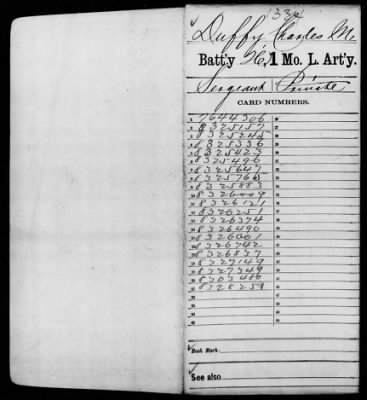 1334
Duffy Charles M.
Batt'y H, 1 Mo. L. Art'y.
Sergeant Private
CARD NUMBERS.
7644306
8325157
8325245
8325336
8325423
8325496
8325647
8325765
8325883
8326009
8326121
8326251
8326374
8326490
8326601
8326742
8326837
8327149
8327349
8303486
8328259
Book Mark:
See also